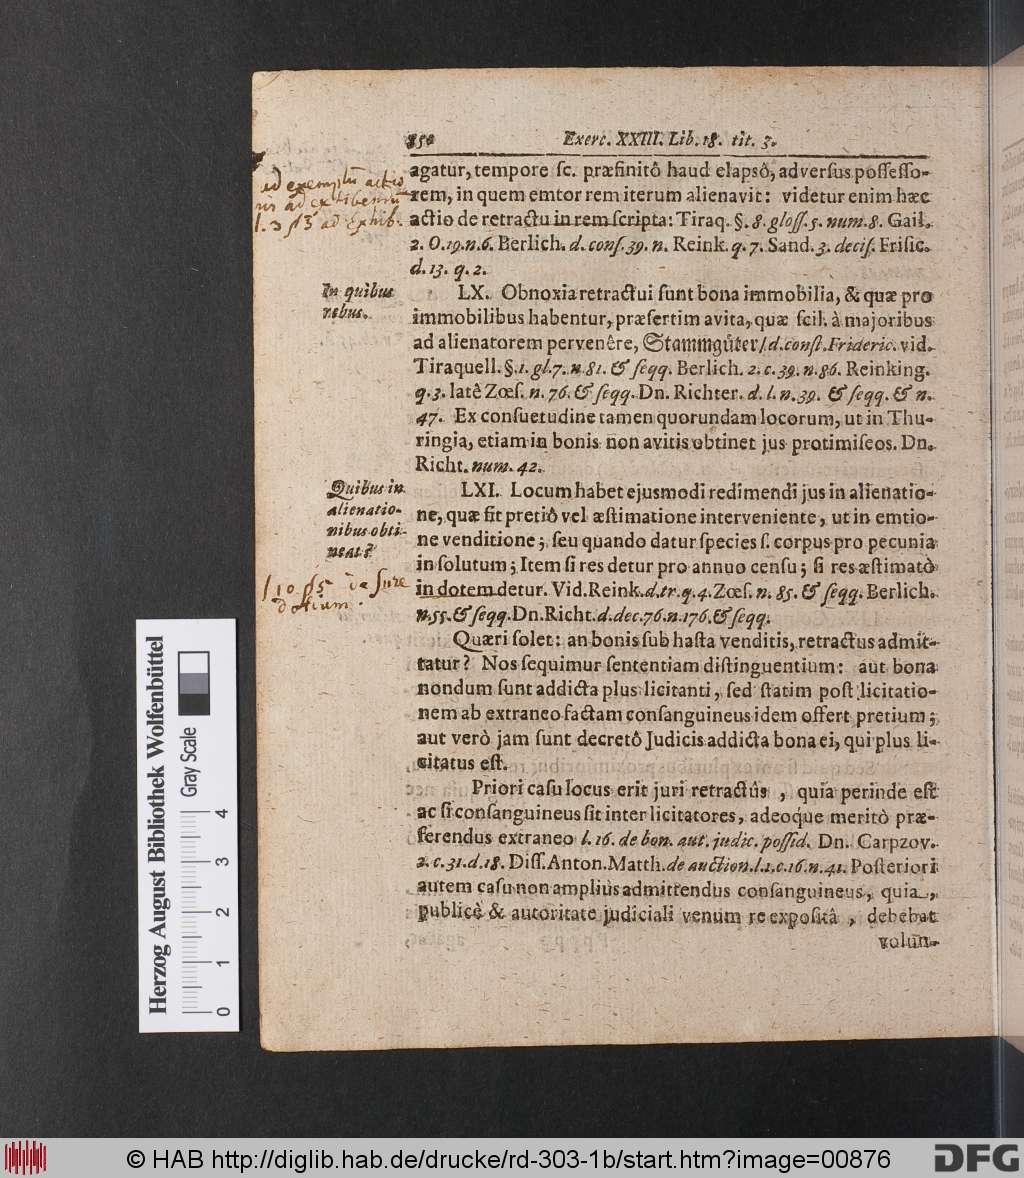 850 Exerc. XXIII. Lib. 18. tit. 3.
agatur, tempore ſc. præfinitô haud elapsô, adverſus poſſeſſo-
rem, in quem emtor rem iterum alienavit: videtur enim hæc
actio de retractu in rem ſcripta: Tiraq. §. 8. gloſſ. 5. num. 8. Gail.
2. O. 19. n. 6. Berlich. d. conſ. 39. n. Reink. q. 7. Sand. 3. deciſ. Friſic.
d. 13. q. 2.
ad exemplũ
l. 3 §3 ad Exhib.
In quibus
rebus.
LX. Obnoxia retractui ſunt bona immobilia, & quæ pro
immobilibus habentur, præſertim avita, quæ ſcil. à majoribus
ad alienatorem pervenêre, Stammgüter/ d. conſt. Frideric. vid.
Tiraquell. §. 1. gl. 7. n. 81. & ſeqq. Berlich. 2. c. 39. n. 86. Reinking.
q. 3. latê Zœſ. n. 76. & ſeqq. Dn. Richter. d. l. n. 39. & ſeqq. & n.
47. Ex conſuetudine tamen quorundam locorum, ut in Thu-
ringia, etiam in bonis non avitis obtinet jus protimiſeos. Dn.
Richt. num. 42.
Quibus in
alienatio-
nibus obti-
neat?
LXI. Locum habet ejusmodi redimendi jus in alienatio-
ne, quæ fit pretiô vel æſtimatione interveniente, ut in emtio-
ne venditione; ſeu quando datur ſpecies ſ. corpus pro pecunia
in ſolutum; Item ſi res detur pro annuo cenſu; ſi res æſtimatò
in dotem detur. Vid. Reink. d. tr. q. 4. Zœſ. n. 85. & ſeqq. Berlich.
n. 55. & ſeqq. Dn. Richt. d. dec. 76. n. 176. & ſeqq.
l 10 §5 de Jure
dotium.
Quæri ſolet: an bonis ſub haſta venditis, retractus admit-
tatur? Nos ſequimur ſententiam diſtinguentium: aut bona
nondum ſunt addicta plus licitanti, ſed ſtatim poſt licitatio-
nem ab extraneo factam conſanguineus idem offert pretium;
aut verò jam ſunt decretô Judicis addicta bona ei, qui plus li-
citatus eſt.
Priori caſu locus erit juri retractûs , quia perinde eſt
ac ſi conſanguineus ſit inter licitatores, adeoque meritò præ-
ferendus extraneo l. 16. de bon. aut. judic. poſſid. Dn. Carpzov.
2. c. 31. d. 18. Diſſ. Anton. Matth. de auction. l. 1. c. 16. n. 41. Poſteriori
autem caſu non amplius admittendus conſanguineus, quia ,
publicè & autoritate judiciali venum re expoſitâ , debebat
volun-
Herzog August Bibliothek Wolfenbüttel
Gray Scale
0 1 2 3 4
© HAB http://diglib.hab.de/drucke/rd-303-1b/start.htm?image=00876
DFG